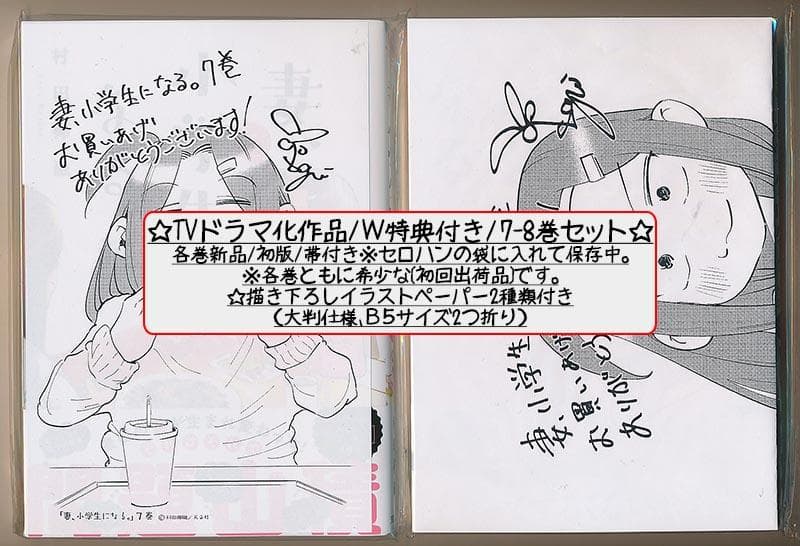 妻、小学生になる。7巻
お買いあげ
ありがとうございます!
☆TVドラマ化作品/W特典付き/7-8巻セット☆
各巻新品/初版/帯付き※セロハンの袋に入れて保存中。
※各巻ともに希少な(初回出荷品)です。
☆描き下ろしイラストペーパー2種類付き
(大判仕様、B5サイズ2つ折り)
妻、小学生
お買いあげ
ありがと
「妻、小学生になる。」7巻